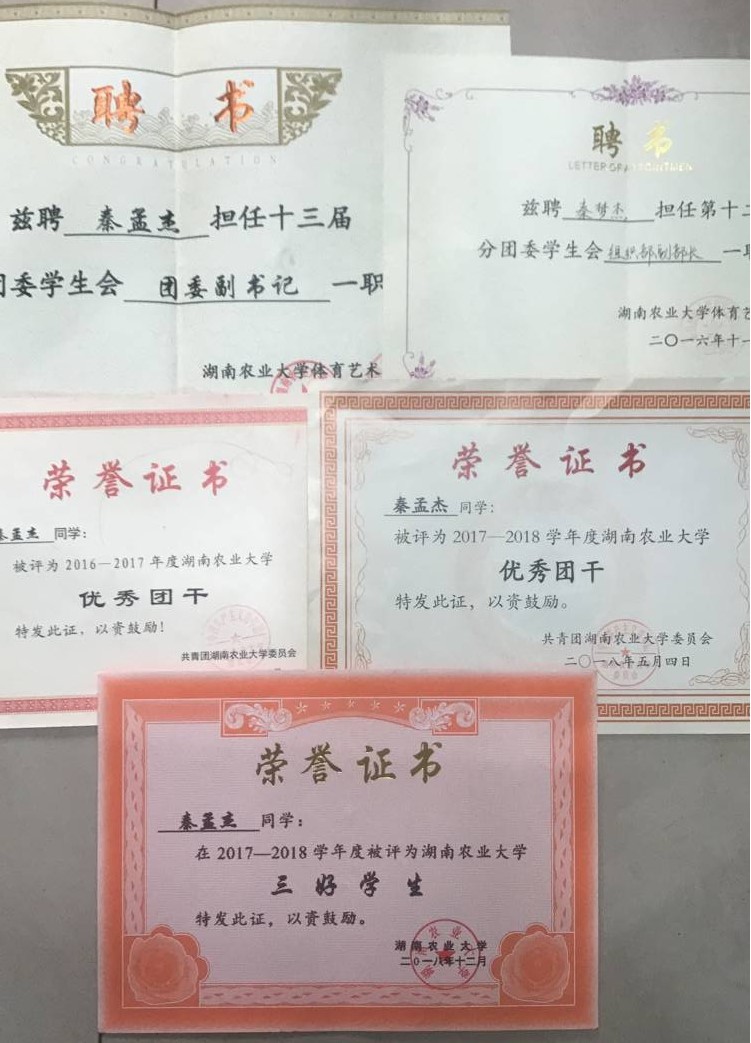 聘 书
CONGRATULATION
兹聘 秦孟杰 担任十三届
团委学生会 团委副书记 一职
湖南农业大学体育艺术
聘 书
兹聘 秦梦杰 担任第十二
分团委学生会 组织部副部长 一职
湖南农业大学体育艺
二〇一六年十一
荣誉证书
秦孟杰 同学:
被评为2016—2017年度湖南农业大学
优秀团干
特发此证,以资鼓励!
共青团湖南农业大学委员会
荣誉证书
秦孟杰 同学:
被评为2017—2018学年度湖南农业大学
优秀团干
特发此证,以资鼓励。
共青团湖南农业大学委员会
二〇一八年五月四日
荣誉证书
秦孟杰 同学:
在2017—2018学年度被评为湖南农业大学
三好学生
特发此证,以资鼓励。
湖南农业大学
二〇一八年十二月